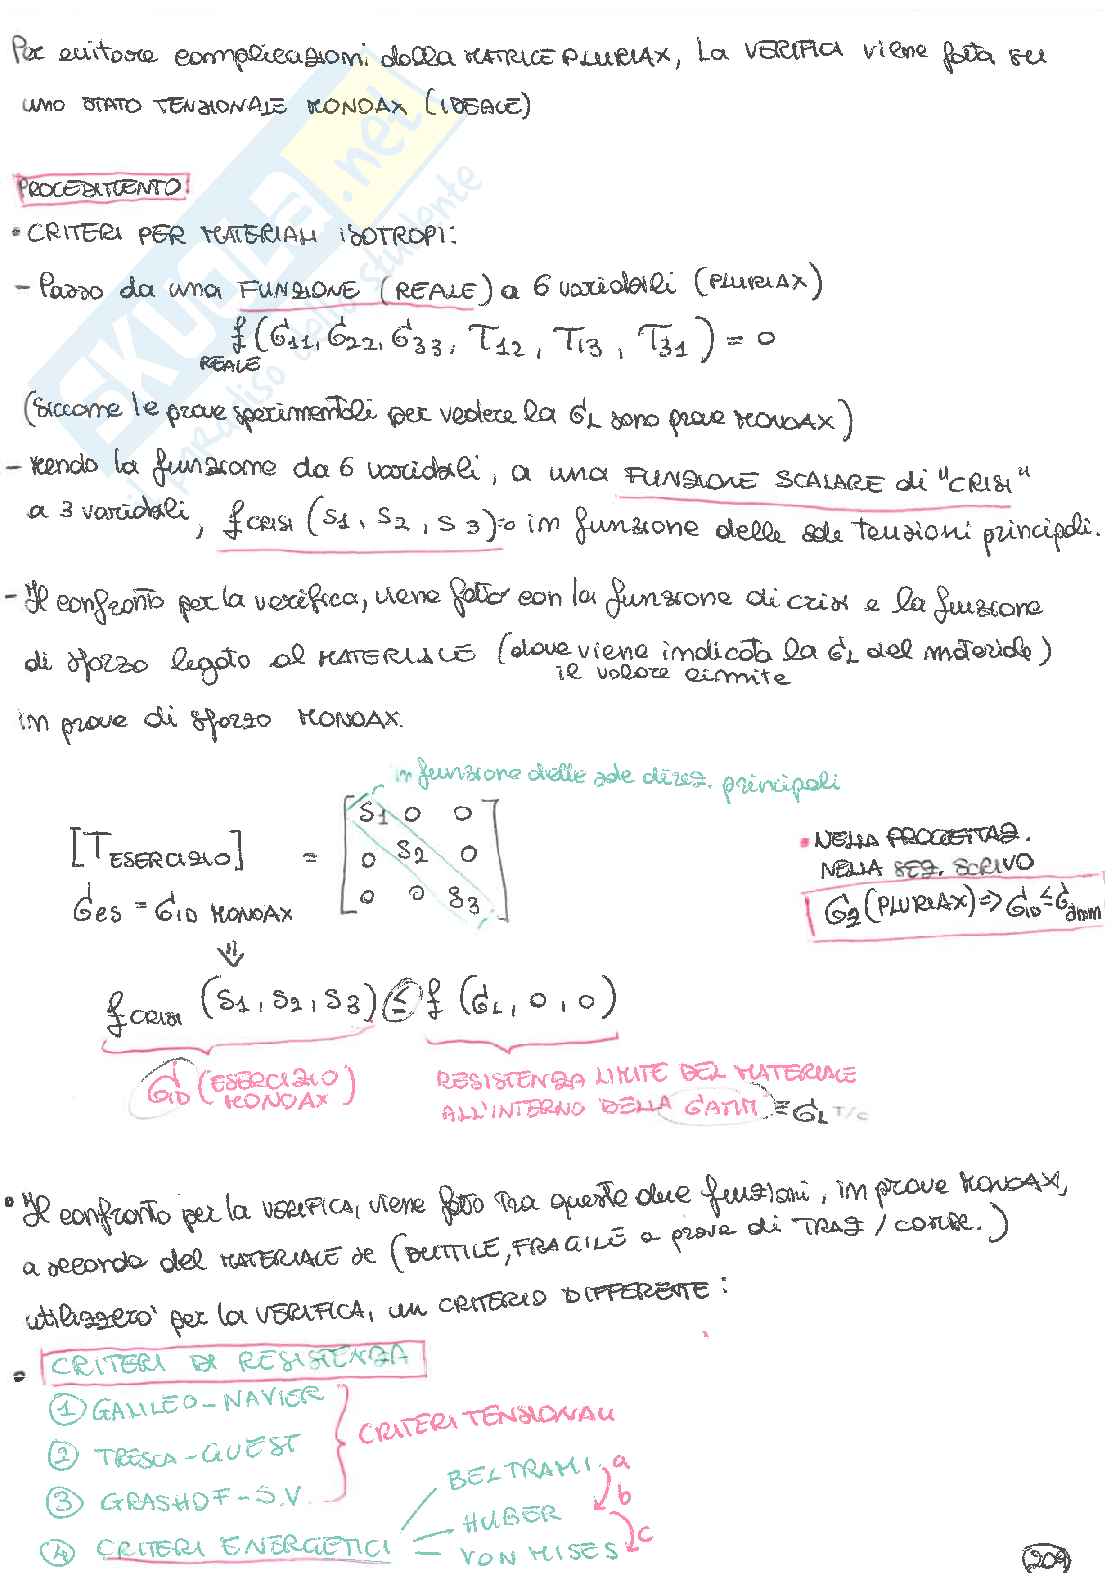 Per evitare complicazioni dalla MATRICE PLURIAX, La VERIFICA viene fatta su
uno STATO TENSIONALE MONOAX (IDEALE)
PROCEDIMENTO:
• CRITERI PER MATERIALI ISOTROPI:
- Passo da una FUNZIONE (REALE) a 6 variabili (PLURIAX)
f REALE (σ11, σ22, σ33, τ12, τ13, τ31) = 0
(Siccome le prove sperimentali per vedere la σL sono prove MONOAX)
- Rendo la funzione da 6 variabili, a una FUNZIONE SCALARE di "CRISI"
a 3 variabili, f CRISI (S1, S2, S3)=0 in funzione delle sole tensioni principali.
- Il confronto per la verifica, viene fatto con la funzione di crisi e la funzione
di sforzo legato al MATERIALE (dove viene indicata la σL del materiale)
il valore limite
in prove di sforzo MONOAX.
in funzione delle sole direz. principali
[T ESERCIZIO] = [S1 0 0
0 S2 0
0 0 S3]
σes = σID MONOAX
• NELLA PROGETTAZ.
NELLA SEZ. SCRIVO
σz (PLURIAX) => σID ≤ σamm
f CRISI (S1, S2, S3) ≤ f (σL, 0, 0)
σID (ESERCIZIO MONOAX)
RESISTENZA LIMITE DEL MATERIALE
ALL'INTERNO DELLA σAMM ≡ σL T/C
• Il confronto per la VERIFICA, viene fatto tra queste due funzioni, in prove MONOAX,
a seconda del MATERIALE se (DUTTILE, FRAGILE a prova di TRAZ / COMPR.)
utilizzerò per la VERIFICA, un CRITERIO DIFFERENTE:
• CRITERI DI RESISTENZA
① GALILEO-NAVIER
② TRESCA-GUEST
③ GRASHOF-S.V.
CRITERI TENSIONALI
④ CRITERI ENERGETICI
BELTRAMI a
HUBER b
VON MISES c
209
SKUOLA.net
il paradiso dello studente